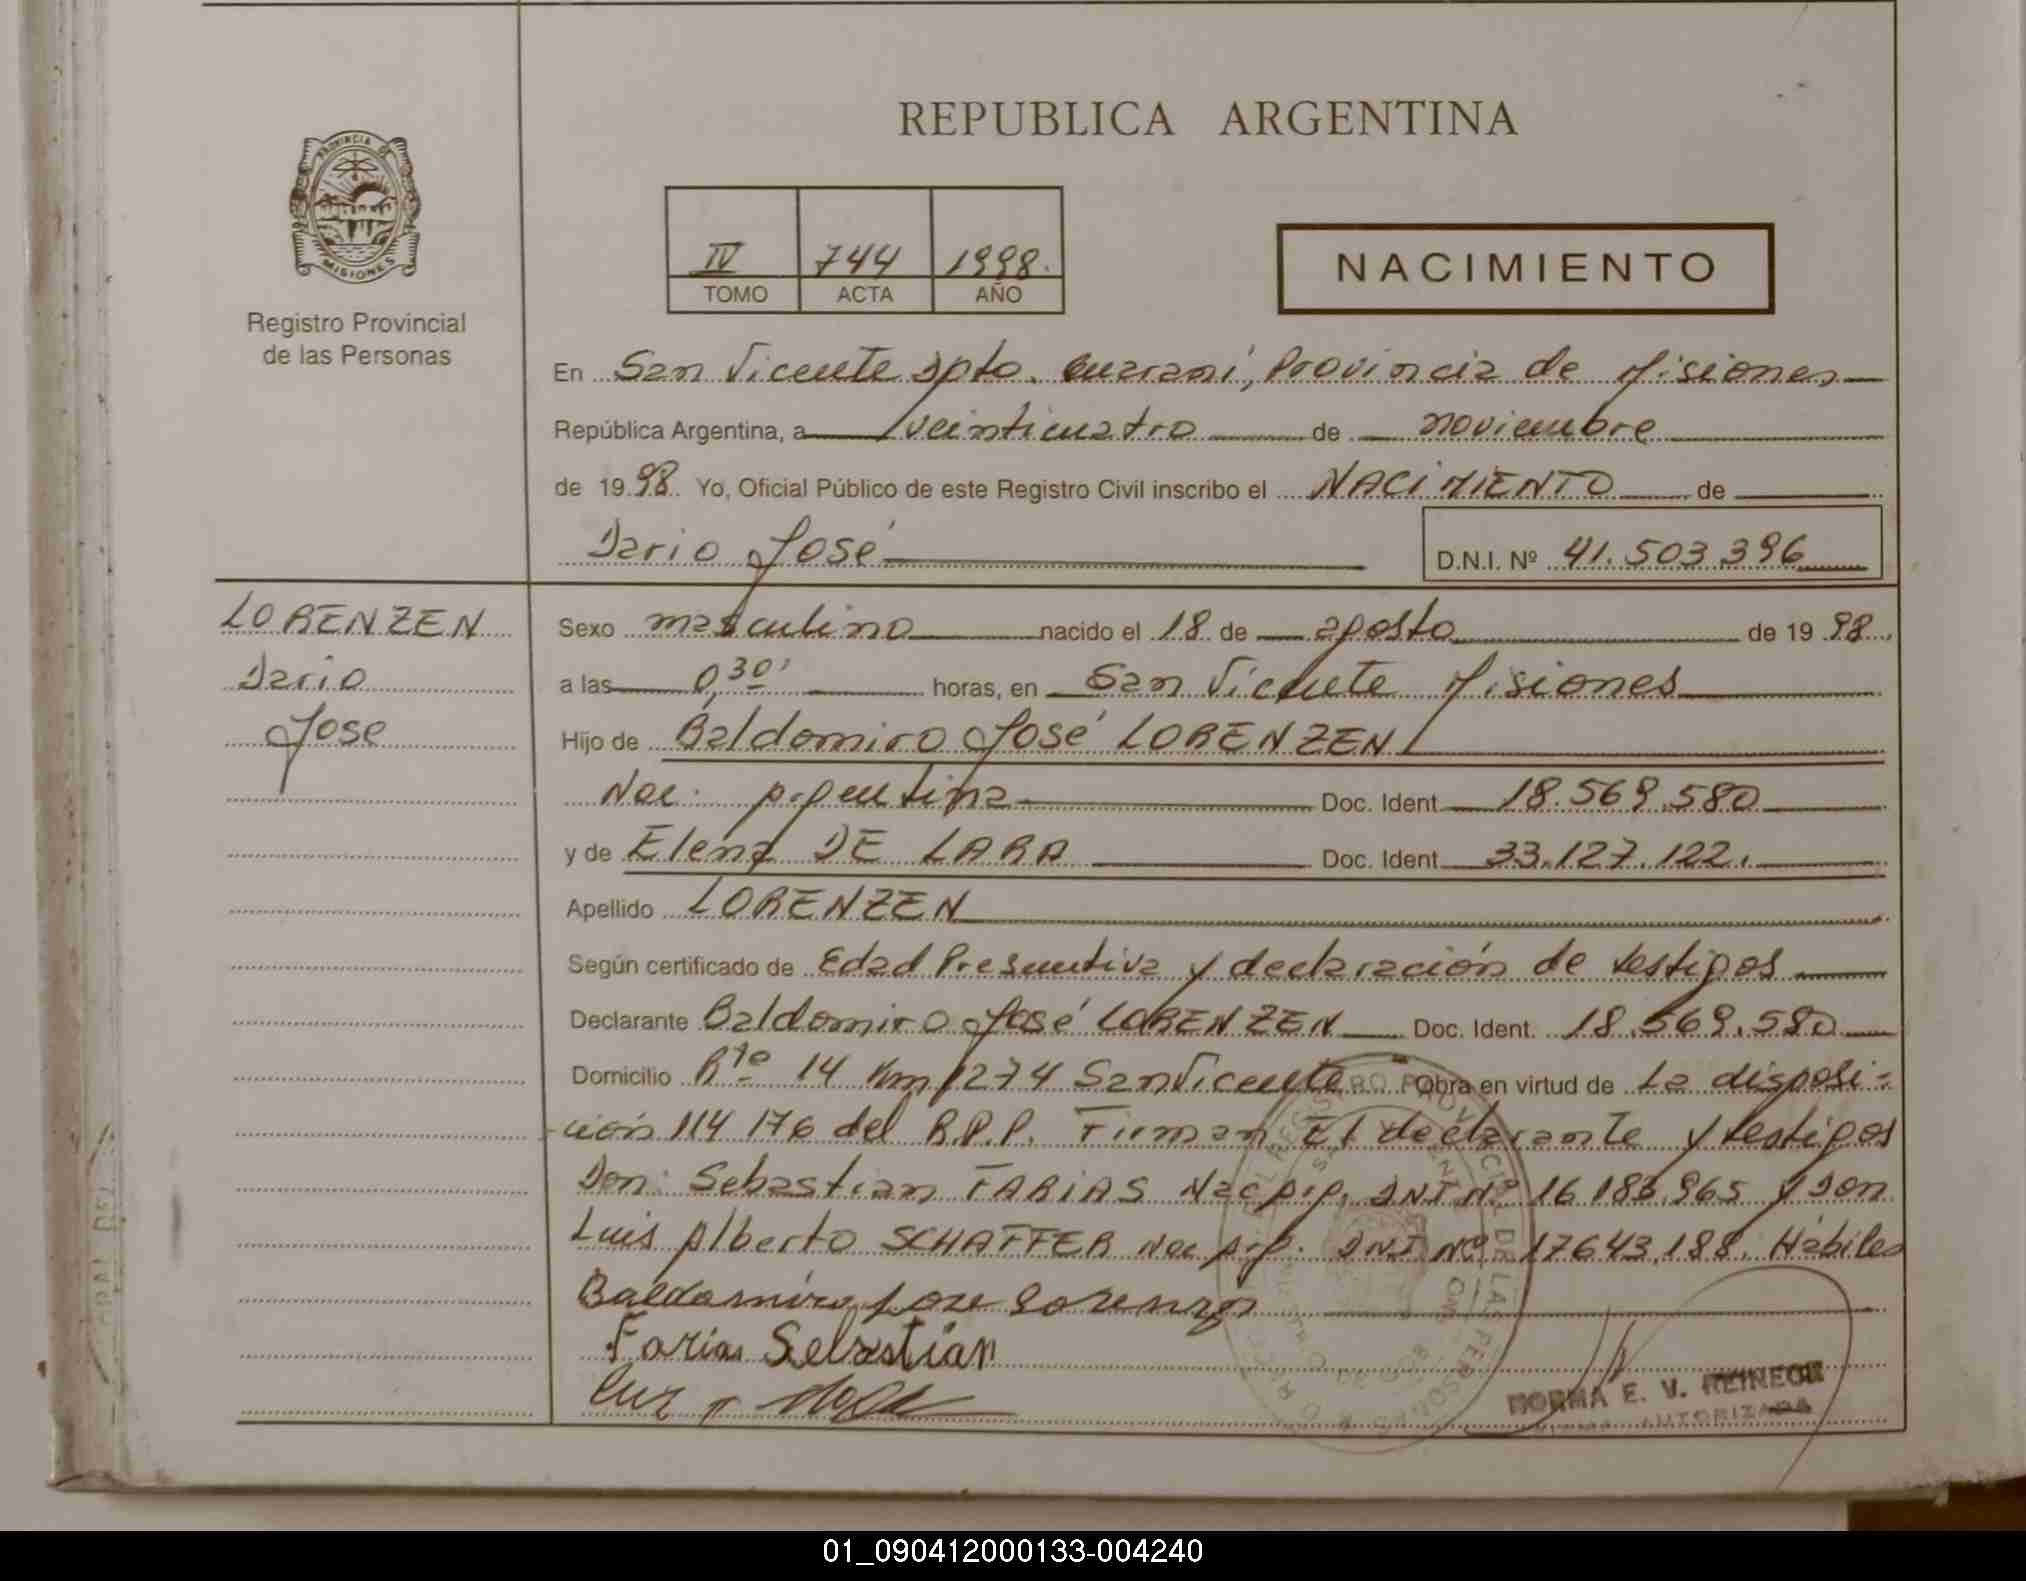 REPUBLICA ARGENTINA
PROVINCIA DE
MISIONES
Registro Provincial
de las Personas
IV 744 1998.
TOMO ACTA AÑO
NACIMIENTO
En San Vicente Dpto. Guaraní, Provincia de Misiones
República Argentina, a veinticuatro de noviembre
de 1998. Yo, Oficial Público de este Registro Civil inscribo el NACIMIENTO de
Dario José
D.N.I. Nº 41.503.396
LORENZEN
Dario
Jose
Sexo masculino nacido el 18 de agosto de 1998.
a las 0,30' horas, en San Vicente Misiones
Hijo de Baldomiro José LORENZEN
Nac. Argentina Doc. Ident 18.569.580
y de Elena DE LARA Doc. Ident 33.127.122.
Apellido LORENZEN
Según certificado de Edad Presuntiva y declaración de testigos
Declarante Baldomiro José LORENZEN Doc. Ident. 18.569.580
Domicilio Rta 14 Km 1274 San Vicente Obra en virtud de La disposi-
-ción 114 176 del R.P.P. Firman El declarante y testigos
Don: Sebastian FARIAS Nac Arg. DNI Nº 16.183.965 y Don
Luis Alberto SCHAFFER Nac Arg. DNI Nº 17643.188. Hábiles
Baldomiro Jose Lorenzen
Farias Sebastian
NORMA E. V. REINECK
AUTORIZADA
01_090412000133-004240